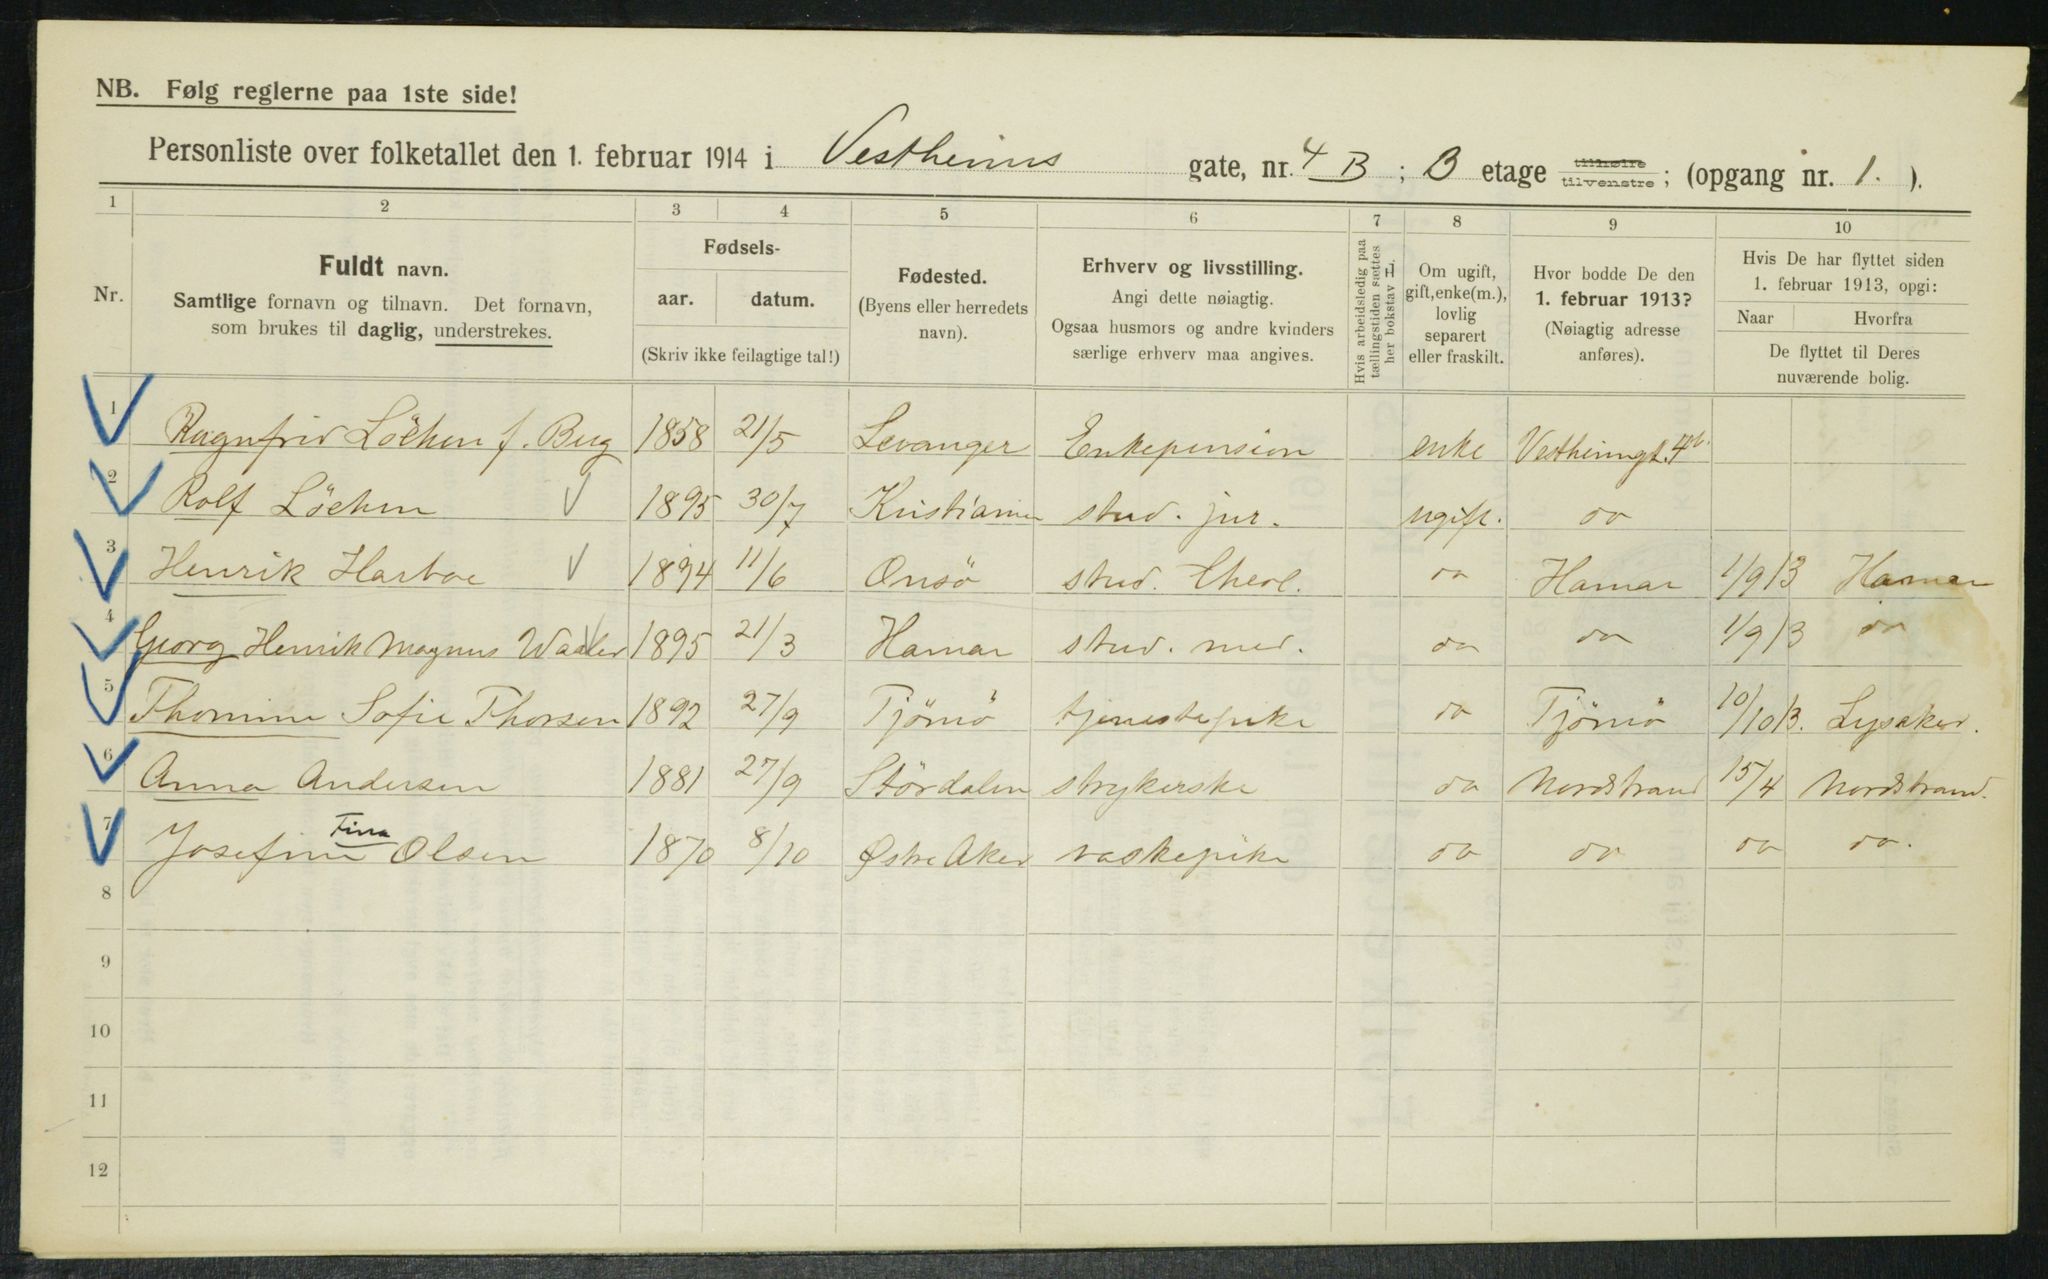 NB. Følg reglerne paa 1ste side!
Personliste over folketallet den 1. februar 1914 i Vestheims gate, nr. 4 B ; B etage tilhøire tilvenstre ; (opgang nr. 1. ).
1 2 3 4 5 6 7 8 9 10
Nr.
Fuldt navn.
Samtlige fornavn og tilnavn. Det fornavn,
som brukes til daglig, understrekes.
Fødsels-
aar. datum.
(Skriv ikke feilagtige tal!)
Fødested.
(Byens eller herredets
navn).
Erhverv og livsstilling.
Angi dette nøiagtig.
Ogsaa husmors og andre kvinders
særlige erhverv maa angives.
Hvis arbeidsledig paa
tællingstiden sættes
her bokstav L.
Om ugift,
gift, enke(m.),
lovlig
separert
eller fraskilt.
Hvor bodde De den
1. februar 1913?
(Nøiagtig adresse
anføres).
Hvis De har flyttet siden
1. februar 1913, opgi:
Naar Hvorfra
De flyttet til Deres
nuværende bolig.
1 Ragnfrid Löchen f. Berg 1858 21/5 Levanger Enkepension enke Vestheimgt. 4b.
2 Rolf Löchen 1895 30/7 Kristiania stud. jur. ugift. do
3 Henrik Harboe 1894 11/6 Onsö stud. theol. do Hamar 1/9 13 Hamar
4 Georg Henrik Magnus Waaler 1895 21/3 Hamar stud. med. do do 1/9 13 do
5 Thomine Sofie Thorsen 1892 27/9 Tjömö tjenestepike do Tjömö 10/10 13. Lysaker.
6 Anna Andersen 1881 27/9 Stördalen strykerske do Nordstrand 15/4 Nordstrand.
7 Josefine Fina Olsen 1870 8/10 Østre Aker vaskepike do do do do.
8
9
10
11
12